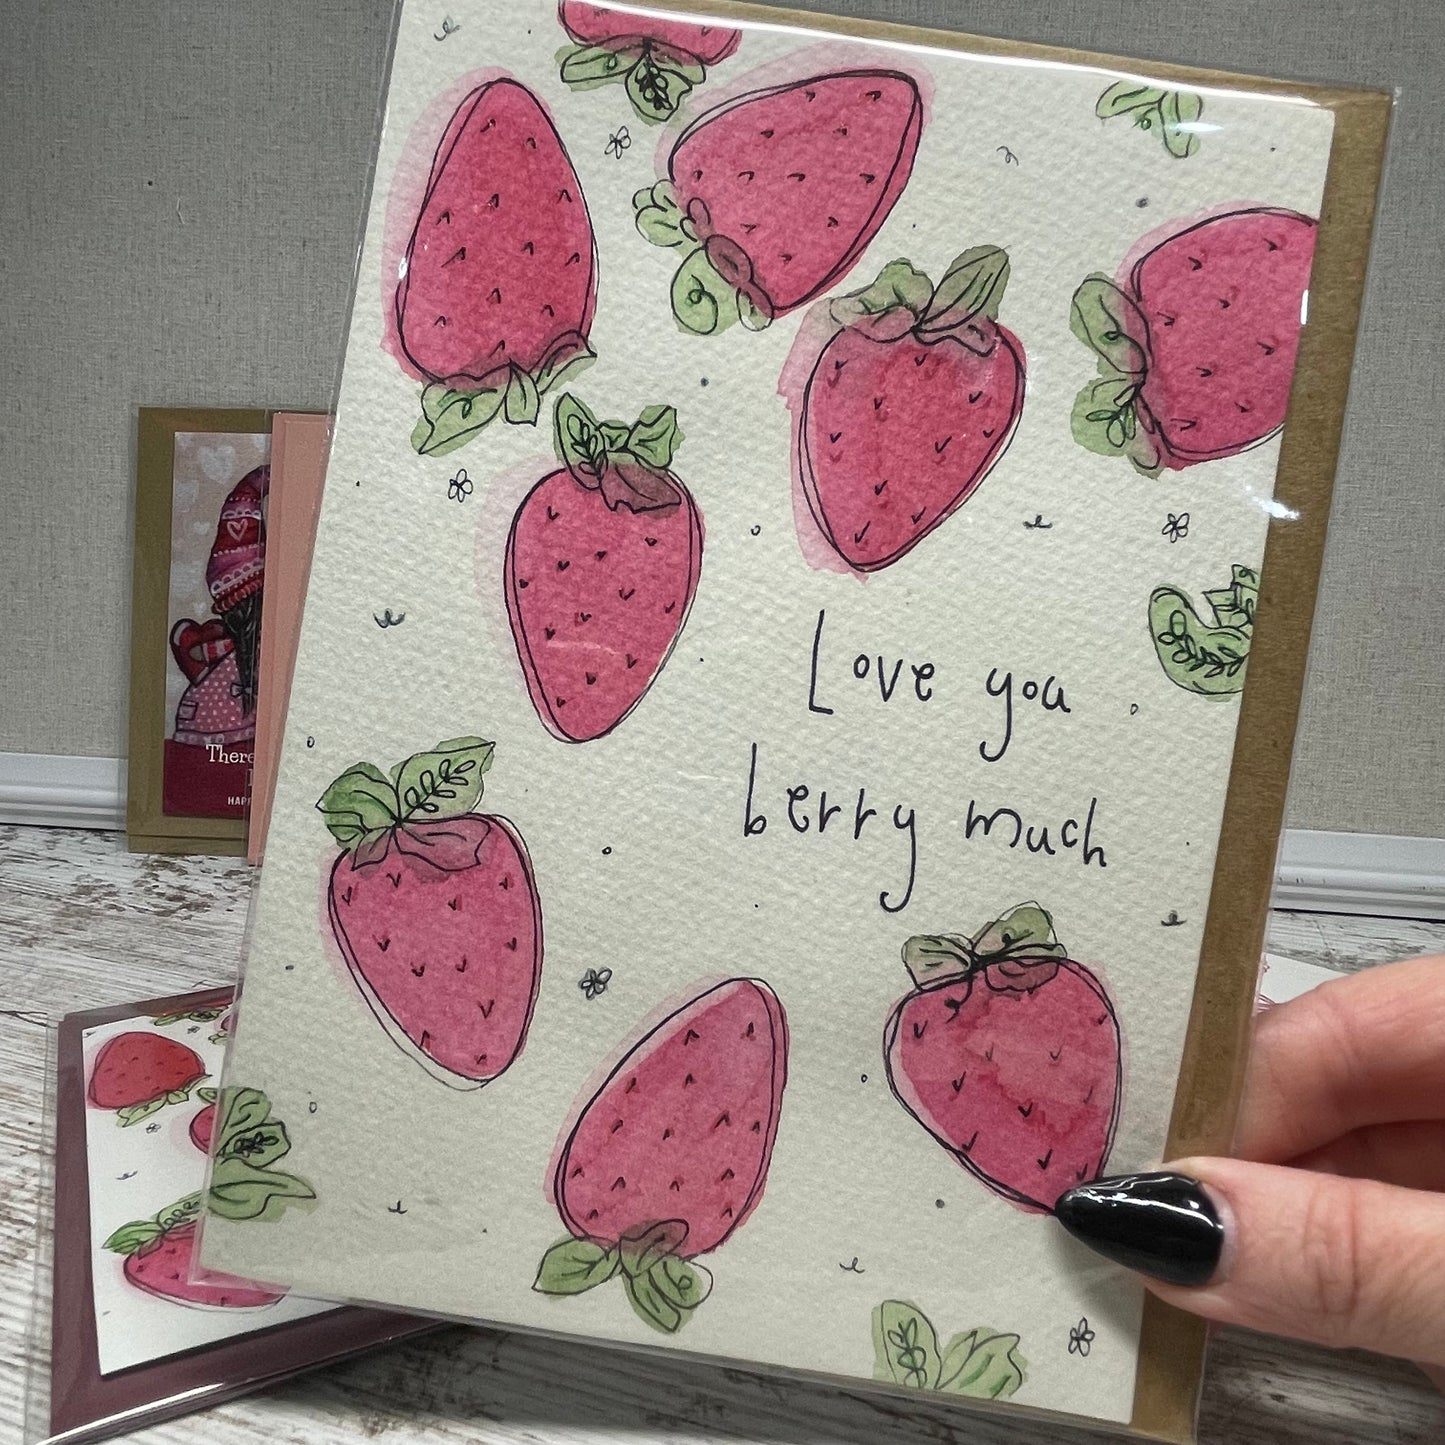 Love you
berry much
There
HAP